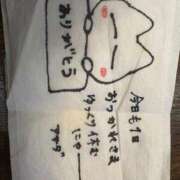 ありがとう
今日も1日
おつかれさま
ゆっくり休む
にゃー